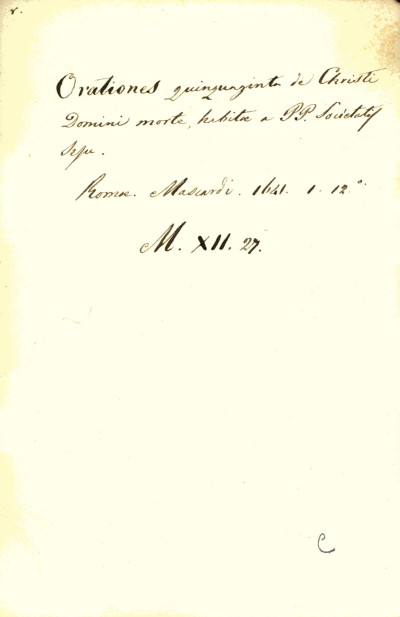 r.
Orationes quinquaginta de Christi
Domini morte, habitæ a PP. Societatis
Jesu.
Romæ. Mascardi. 1641. 1. 12°.
M. XII. 27.
C